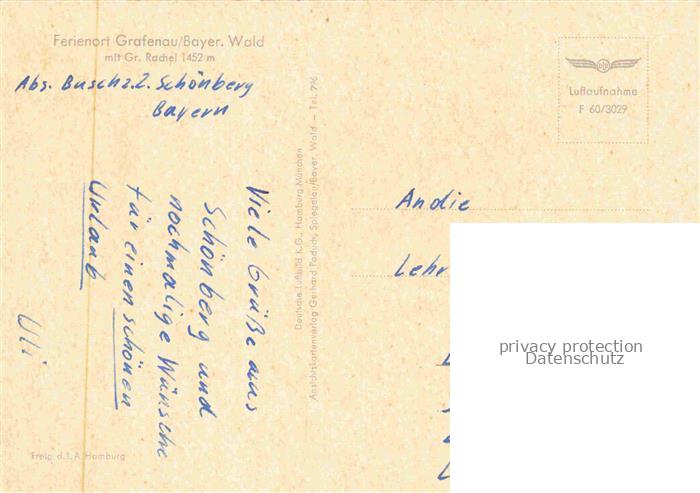 Ferienort Grafenau/Bayer. Wald
mit Gr. Rachel 1452 m
Abs. Buschz.Z. Schönberg
Bayern
Viele Grüße aus
Schönberg und
nochmalige Wünsche
für einen schönen
Urlaub
Uli
Freig. d. L. A. Hamburg
Deutsche Luftbild K.G., Hamburg, München
Ansichtskartenverlag Gerhard Paduch, Spiegelau/Bayer. Wald – Tel. 296
Luftaufnahme
F 60/3029
An die
Lehr
privacy protection
Datenschutz